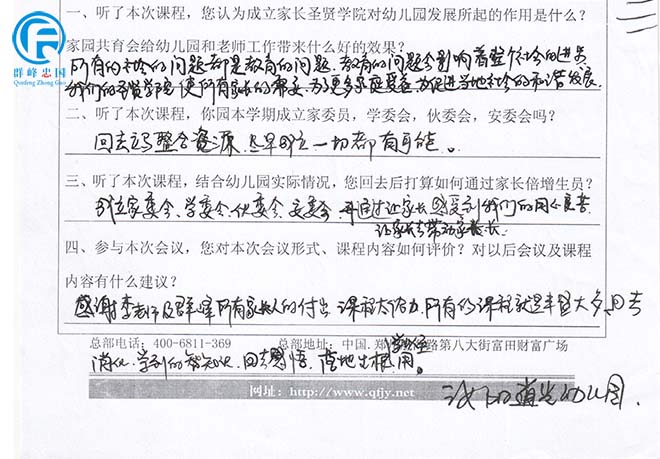 一、听了本次课程，您认为成立家长圣贤学院对幼儿园发展所起的作用是什么？
家园共育会给幼儿园和老师工作带来什么好的效果？
群峰忠国
Qunfeng Zhong Guo
所有的社会的问题都是教育的问题，教育的问题会影响着整个社会的进步
我们的圣贤学院 使所有家长的需要 为了更多家庭受益 为促进当地社会的和谐发展.
二、听了本次课程，你园本学期成立家委员，学委会，伙委会，安委会吗？
回去立马整合资源 尽早成立 一切都有可能。
三、听了本次课程，结合幼儿园实际情况，您回去后打算如何通过家长倍增生员？
成立家委会、学委会、伙委会、安委会 再通过让家长感受到我们的用心良苦
让家长去带动家长.
四、参与本次会议，您对本次会议形式、课程内容如何评价？对以后会议及课程
内容有什么建议？
感谢李老师及群峰所有家人的付出 课程太给力,所有的课程就是丰盛大多,回去
总部电话：400-6811-369 总部地址：中国.郑 路第八大街富田财富广场
消化 学到的 知识 回去感悟 落地 用。
网址：http://www.qfjy.net
幼儿园.